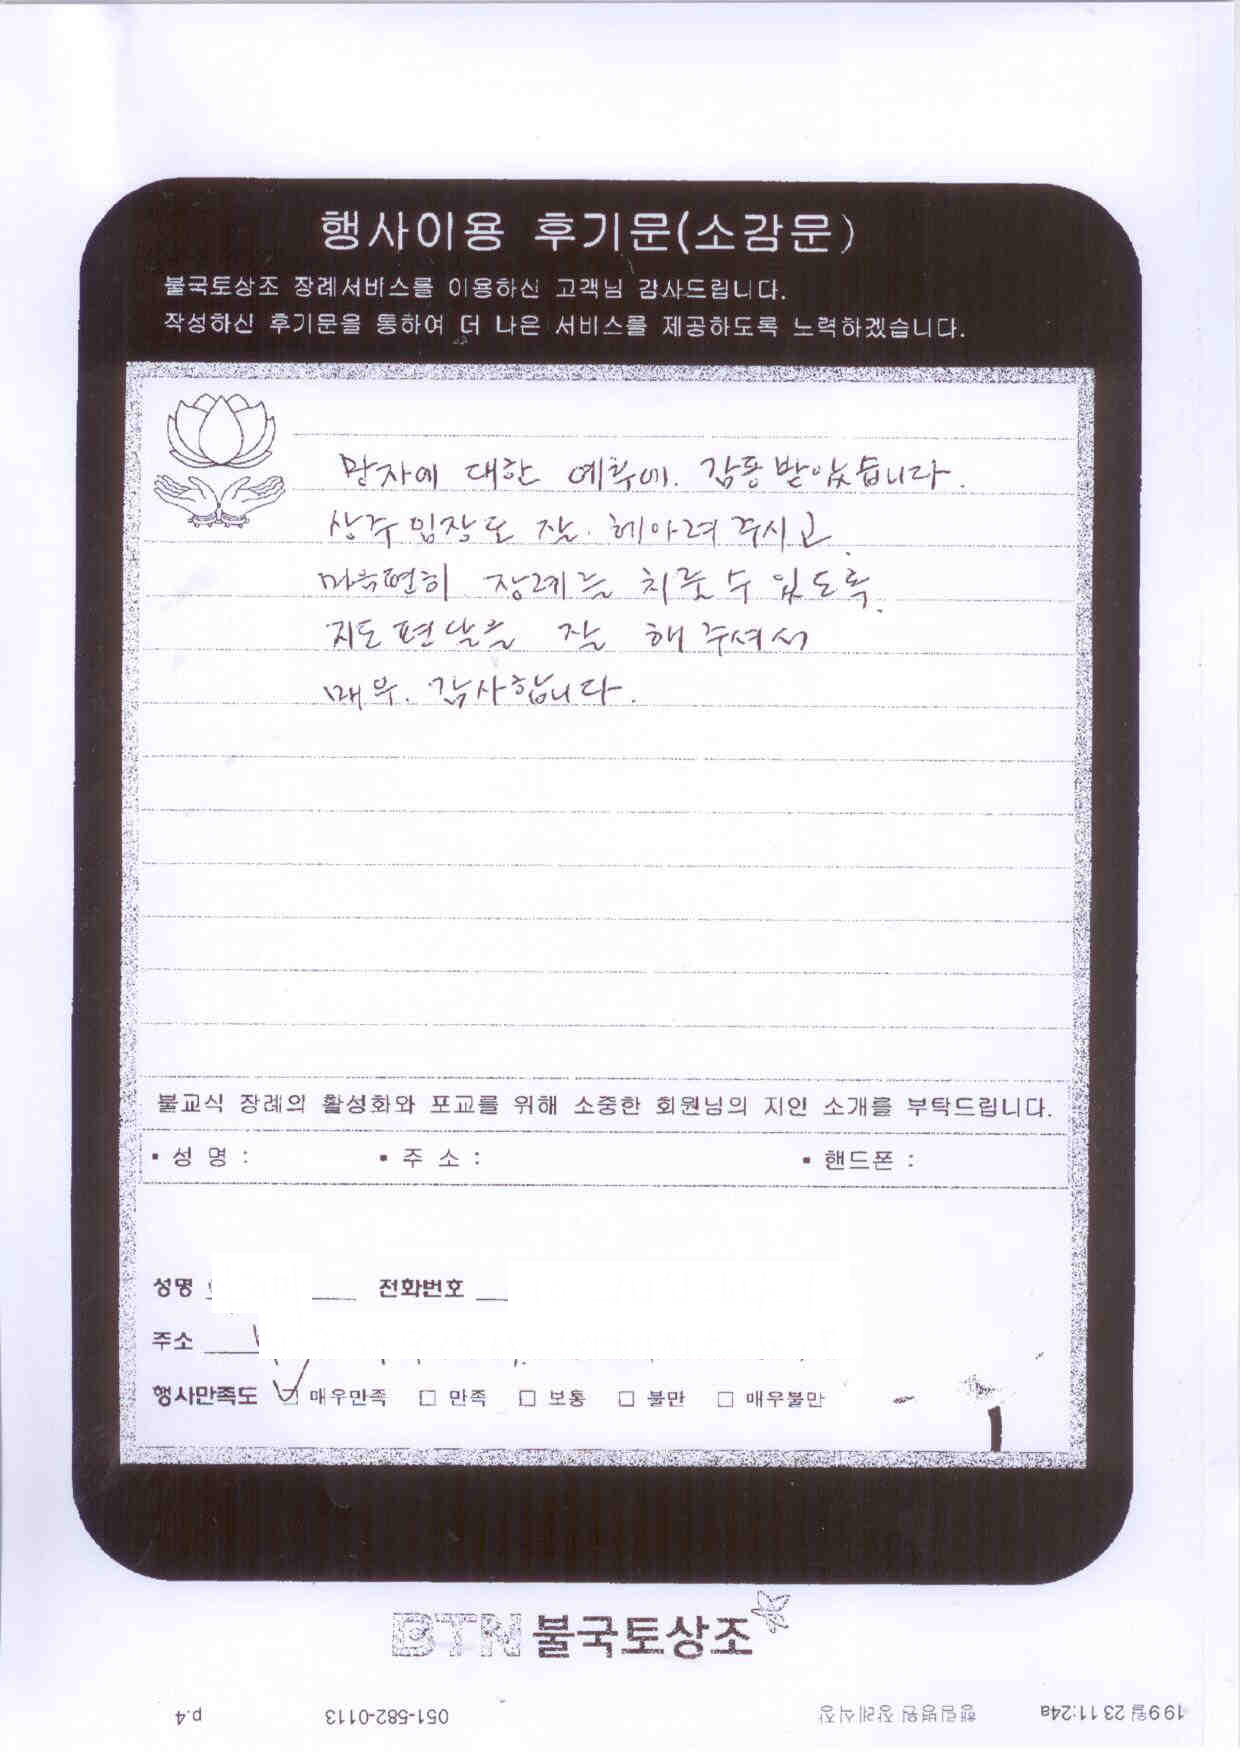 행사이용 후기문(소감문)
불국토상조 장례서비스를 이용하신 고객님 감사드립니다.
작성하신 후기문을 통하여 더 나은 서비스를 제공하도록 노력하겠습니다.
망자에 대한 예학에. 감동받았습니다.
상주입장도 잘. 헤아려주시고.
마음편히 장례를 치룰수 있도록.
지도편달을 잘 해주셔서
매우. 감사합니다.
불교식 장례의 활성화와 포교를 위해 소중한 회원님의 지인 소개를 부탁드립니다.
▪ 성 명 : ▪ 주 소 : ▪ 핸드폰 :
성명 전화번호
주소
행사만족도 ☑ 매우만족 □ 만족 □ 보통 □ 불만 □ 매우불만
BTN 불국토상조
199월 23 11:24a 행림병원장례식장 051-582-0113 p.4